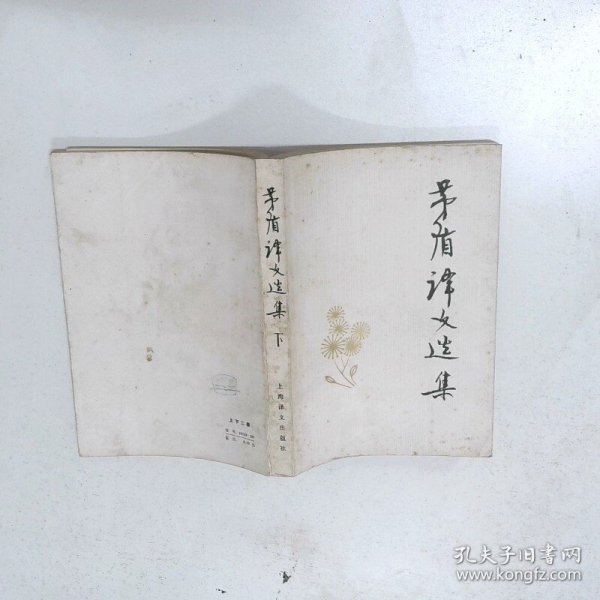 茅盾译文选集
茅盾译文选集 下
上海译文出版社
上下二册
孔夫子旧书网
www.kongfz.com